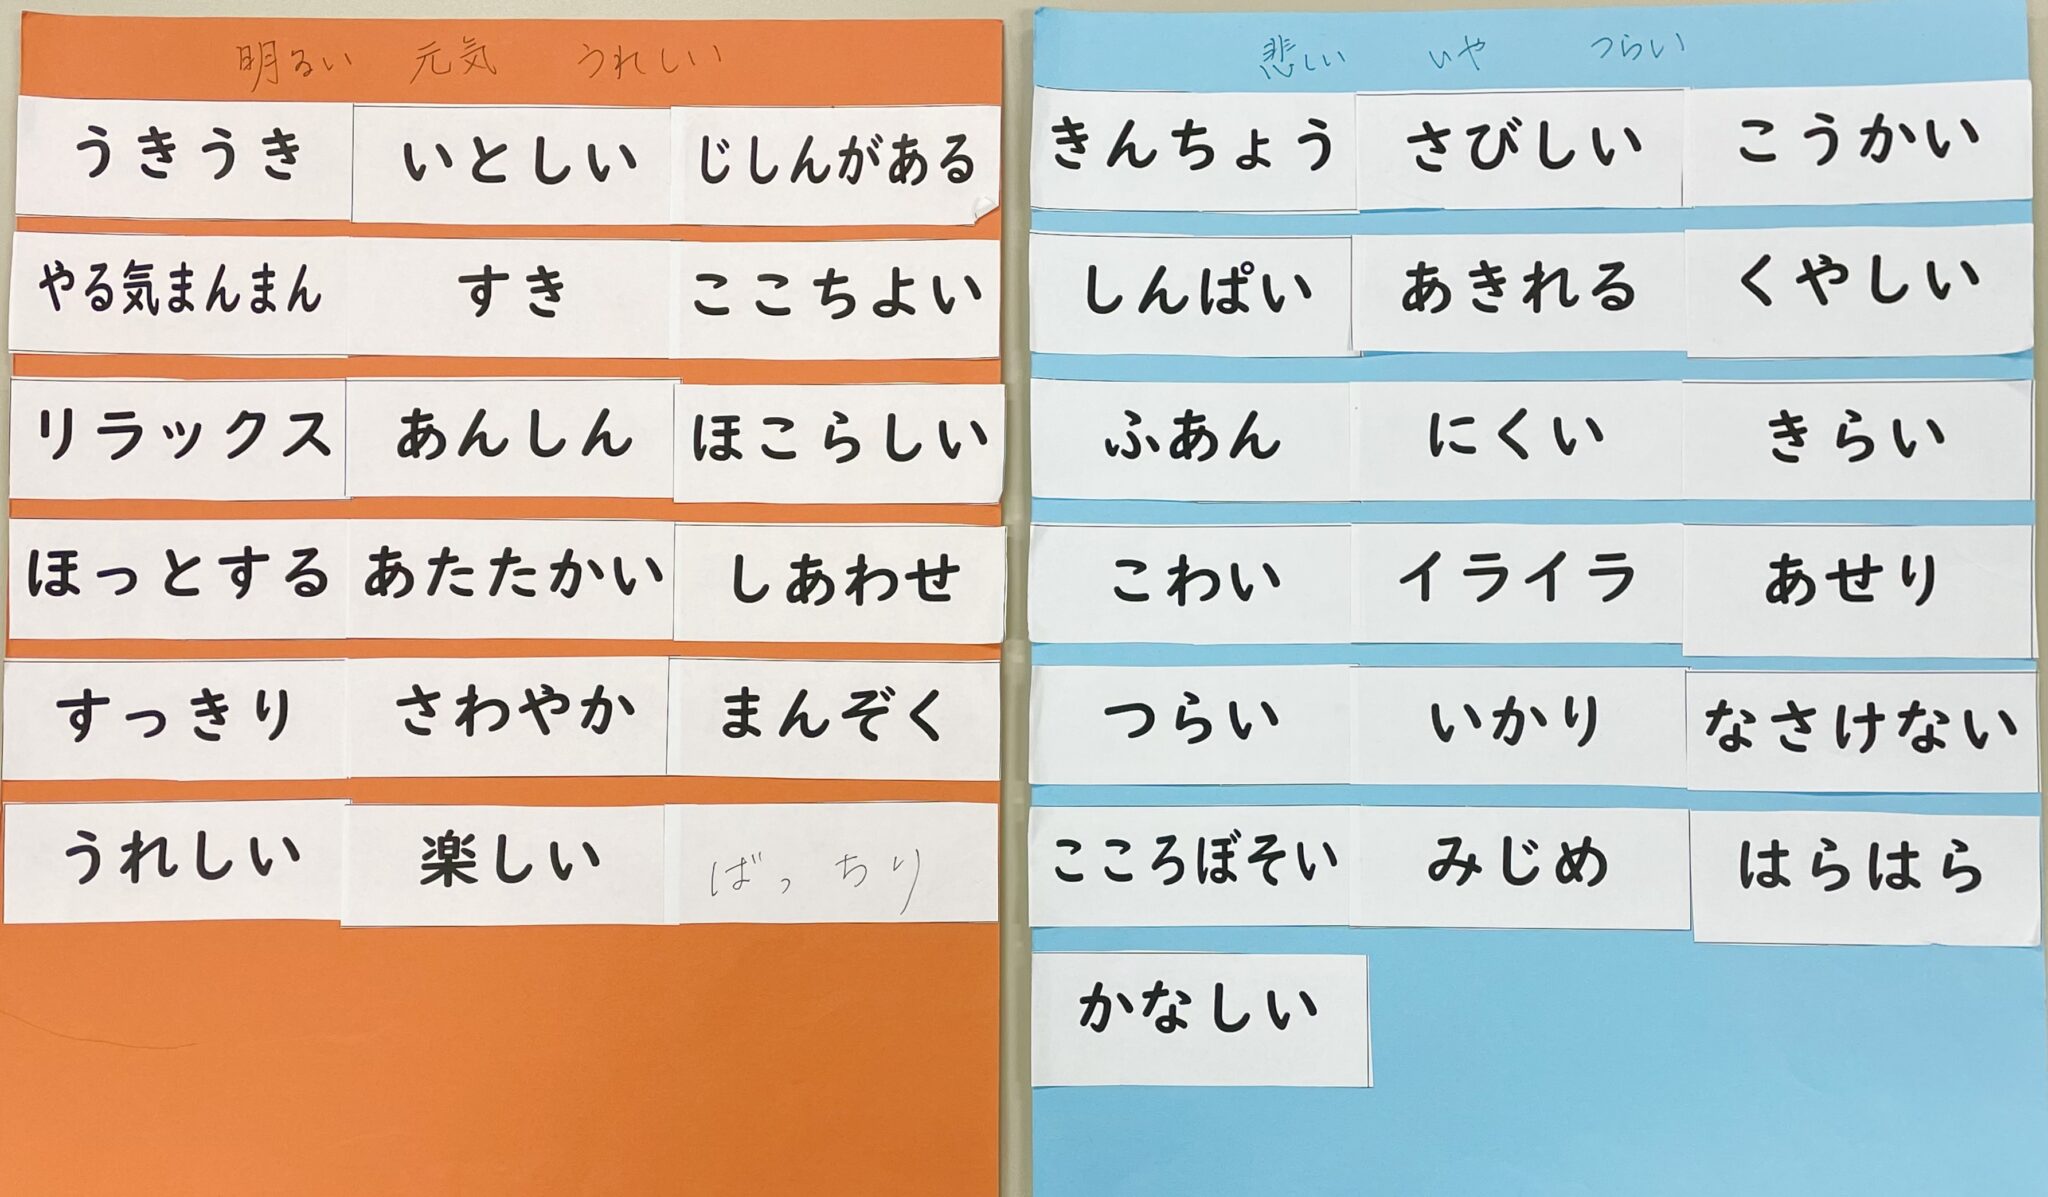 明るい 元気 うれしい
うきうき いとしい じしんがある
やる気まんまん すき ここちよい
リラックス あんしん ほこらしい
ほっとする あたたかい しあわせ
すっきり さわやか まんぞく
うれしい 楽しい ばっちり
悲しい いや つらい
きんちょう さびしい こうかい
しんぱい あきれる くやしい
ふあん にくい きらい
こわい イライラ あせり
つらい いかり なさけない
こころぼそい みじめ はらはら
かなしい